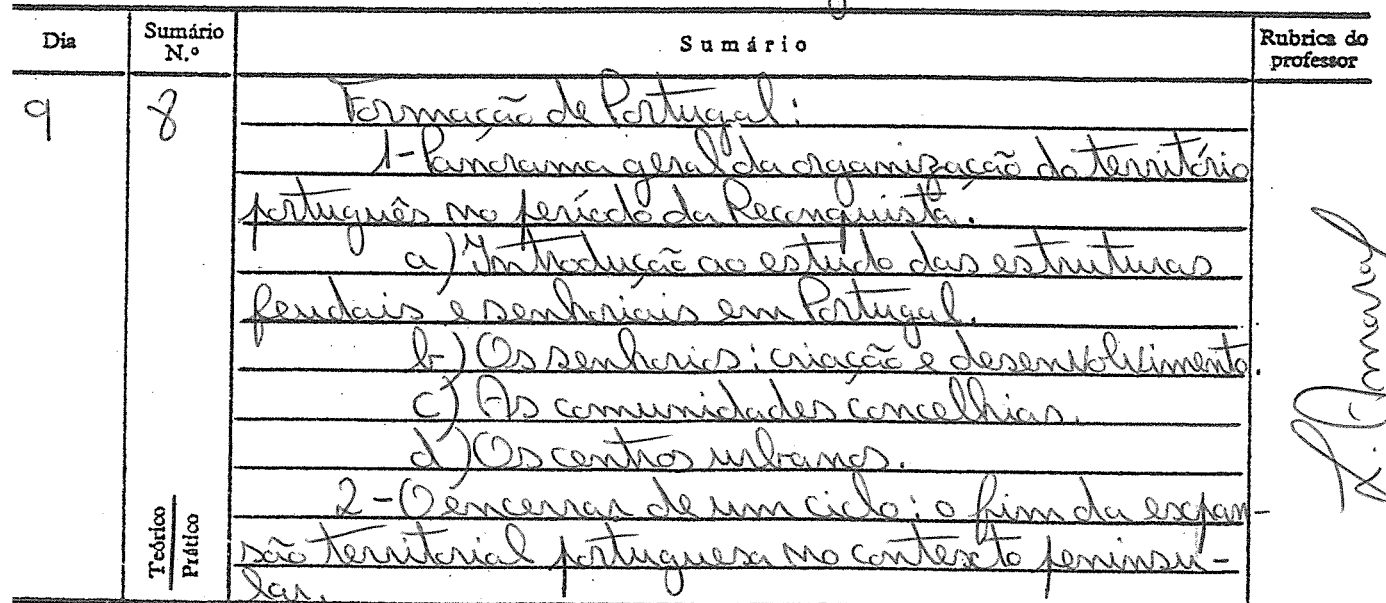 Dia Sumário N.º Sumário Rubrica do professor
9 8 Formação de Portugal:
1-Panorama geral da organização do território
português no período da Reconquista.
a) Introdução ao estudo das estruturas
feudais e senhoriais em Portugal.
b) Os senhorios: criação e desenvolvimento.
c) As comunidades concelhias.
d) Os centros urbanos.
2-O encerrar de um ciclo: o fim da expan-
são territorial portuguesa no contexto peninsu-
lar.
Teórico
Prático
L. Amaral